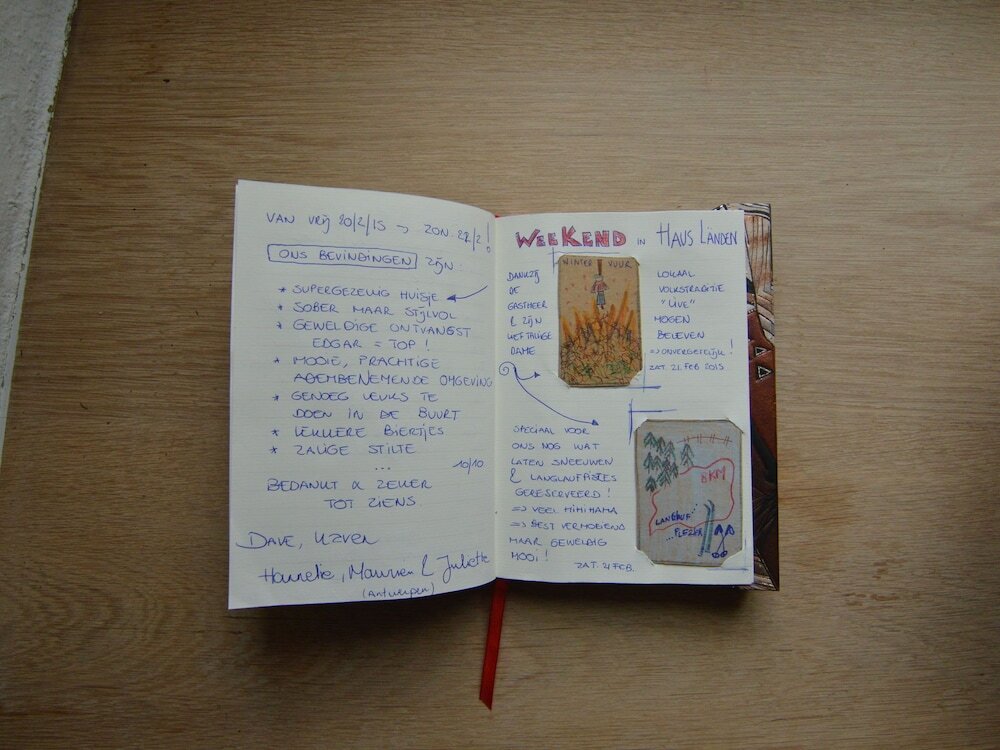 VAN VRIJ 20/2/15 → ZON. 22/2!
ONS BEVINDINGEN ZIJN:
* SUPERGEZELLIG HUISJE
* SOBER MAAR STIJLVOL
* GEWELDIGE ONTVANGST
EDGAR = TOP!
* MOOIE, PRACHTIGE
ADEMBENEMENDE OMGEVING
* GENOEG LEUKS TE
DOEN IN DE BUURT
* LEKKERE BIERTJES
* ZALIGE STILTE
...
10/10
BEDANKT & ZEKER
TOT ZIENS
DAVE,
Hanneke, & Juliette
(Antwerpen)
WEEKEND IN HAUS LÄNDEN
DANKZIJ
DE
GASTHEER
& ZIJN
LIEFTALLIGE
DAME
WINTER VUUR
LOKAAL
VOLKSTRADITIE
"LIVE"
MOGEN
BELEVEN
=> ONVERGETELIJK!
ZAT. 21. FEB 2015
SPECIAAL VOOR
ONS NOG WAT
LATEN SNEEUWEN
& LANGLAUFPISTES
GERESERVEERD!
=> VEEL HIHIHAHA
=> BEST VERMOEIEND
MAAR GEWELDIG
MOOI!
ZAT. 21 FEB.
8KM
LANGLAUF
...PLEZIER